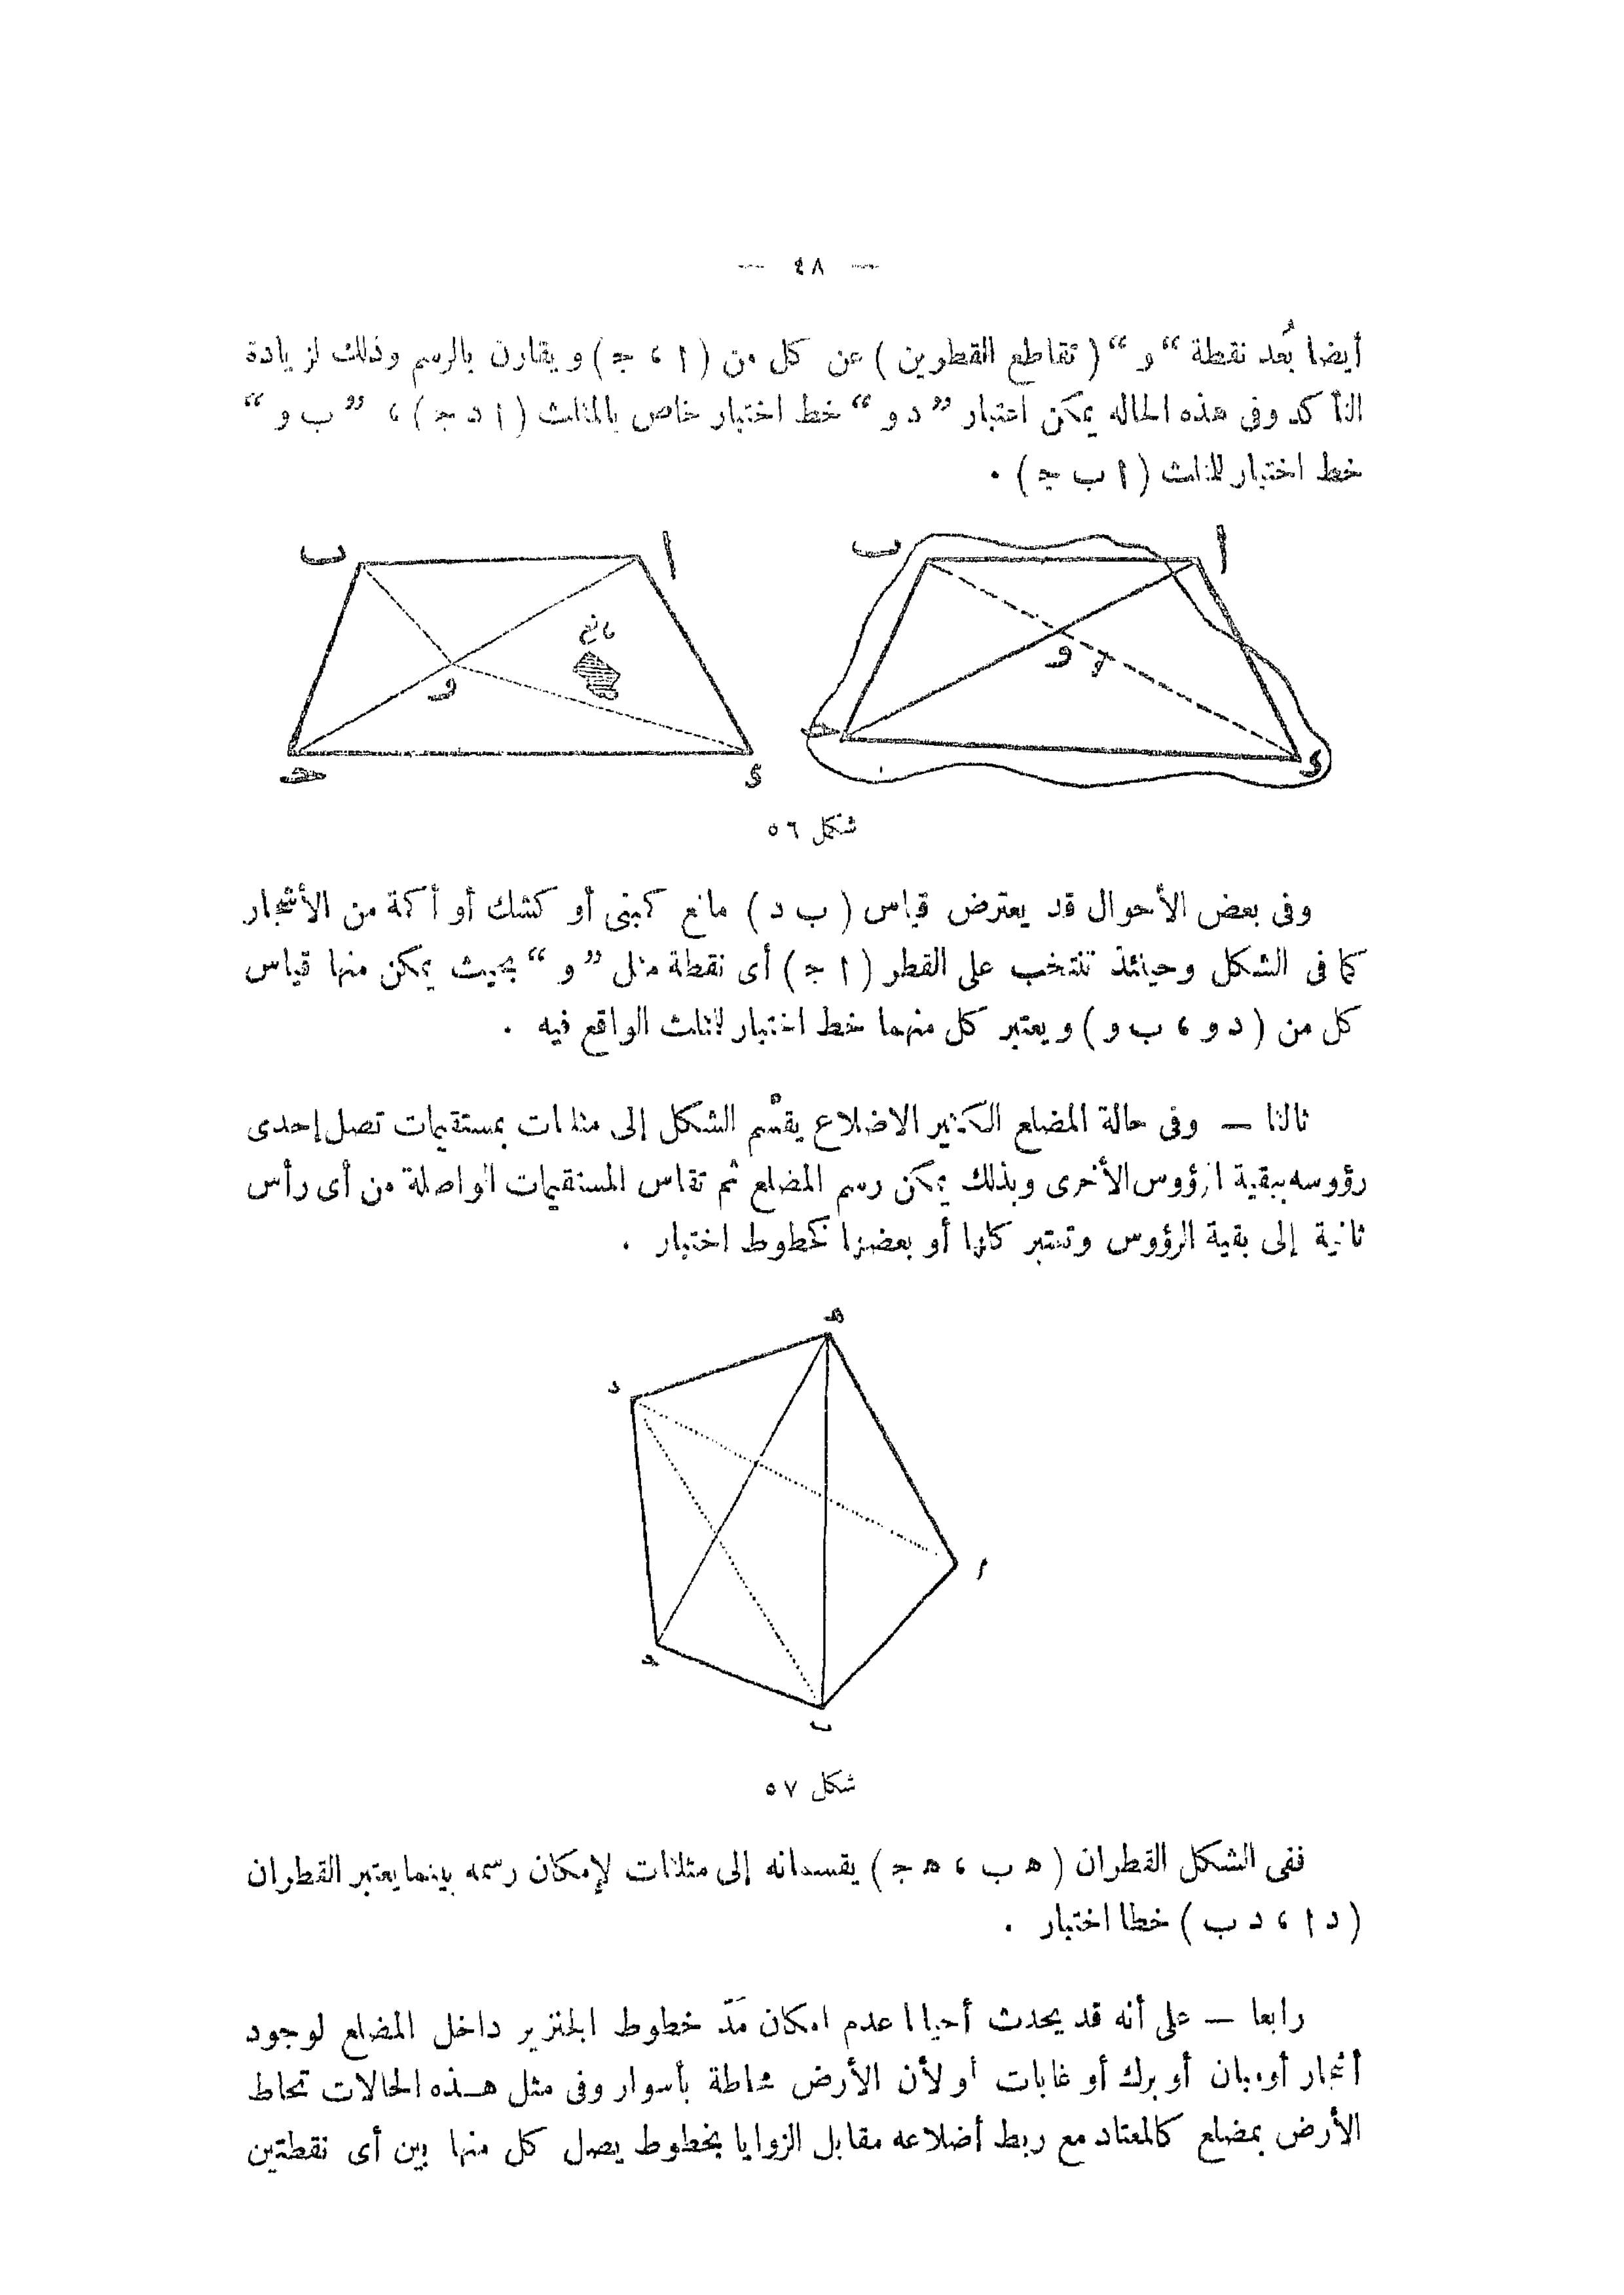 — ٤٨ —
أيضا بُعد نقطة “ و “ ( تقاطع القطرين ) عن كل من ( ا ، ج ) ويقارن بالرسم وذلك لزيادة
التأكد وفى هذه الحاله يمكن اعتبار ” د و “ خط اختبار خاص بالمثلث ( ا د ج ) ، ” ب و “
خط اختبار للمثلث ( ا ب ج ) .
ب ا ب ا
مانع
و و
ج د ج د
شكل ٥٦
وفى بعض الأحوال قد يعترض قياس ( ب د ) مانع كمبنى أو كشك أو أكمة من الأشجار
كما فى الشكل وحينئذ تنتخب على القطر ( ا ج ) أى نقطة مثل ” و “ بحيث يمكن منها قياس
كل من ( د و ، ب و ) ويعتبر كل منهما خط اختبار للمثلث الواقع فيه .
ثالثا — وفى حالة المضلع الكثير الاضلاع يقسّم الشكل إلى مثلثات بمستقيمات تصل إحدى
رؤوسه ببقية الرؤوس الأخرى وبذلك يمكن رسم المضلع ثم تقاس المستقيمات الواصلة من أى رأس
ثانية إلى بقية الرؤوس وتعتبر كلها أو بعضها كخطوط اختبار .
ه
د
ا
ج
ب
شكل ٥٧
ففى الشكل القطران ( ه ب ، ه ج ) يقسمانه إلى مثلثات لإمكان رسمه بينما يعتبر القطران
( د ا ، د ب ) خطا اختبار .
رابعا — على أنه قد يحدث أحيانا عدم امكان مَدّ خطوط الجنزير داخل المضلع لوجود
أشجار أو مبان أو برك أو غابات أو لأن الأرض محاطة بأسوار وفى مثل هذه الحالات تحاط
الأرض بمضلع كالمعتاد مع ربط أضلاعه مقابل الزوايا بخطوط يصل كل منها بين أى نقطتين